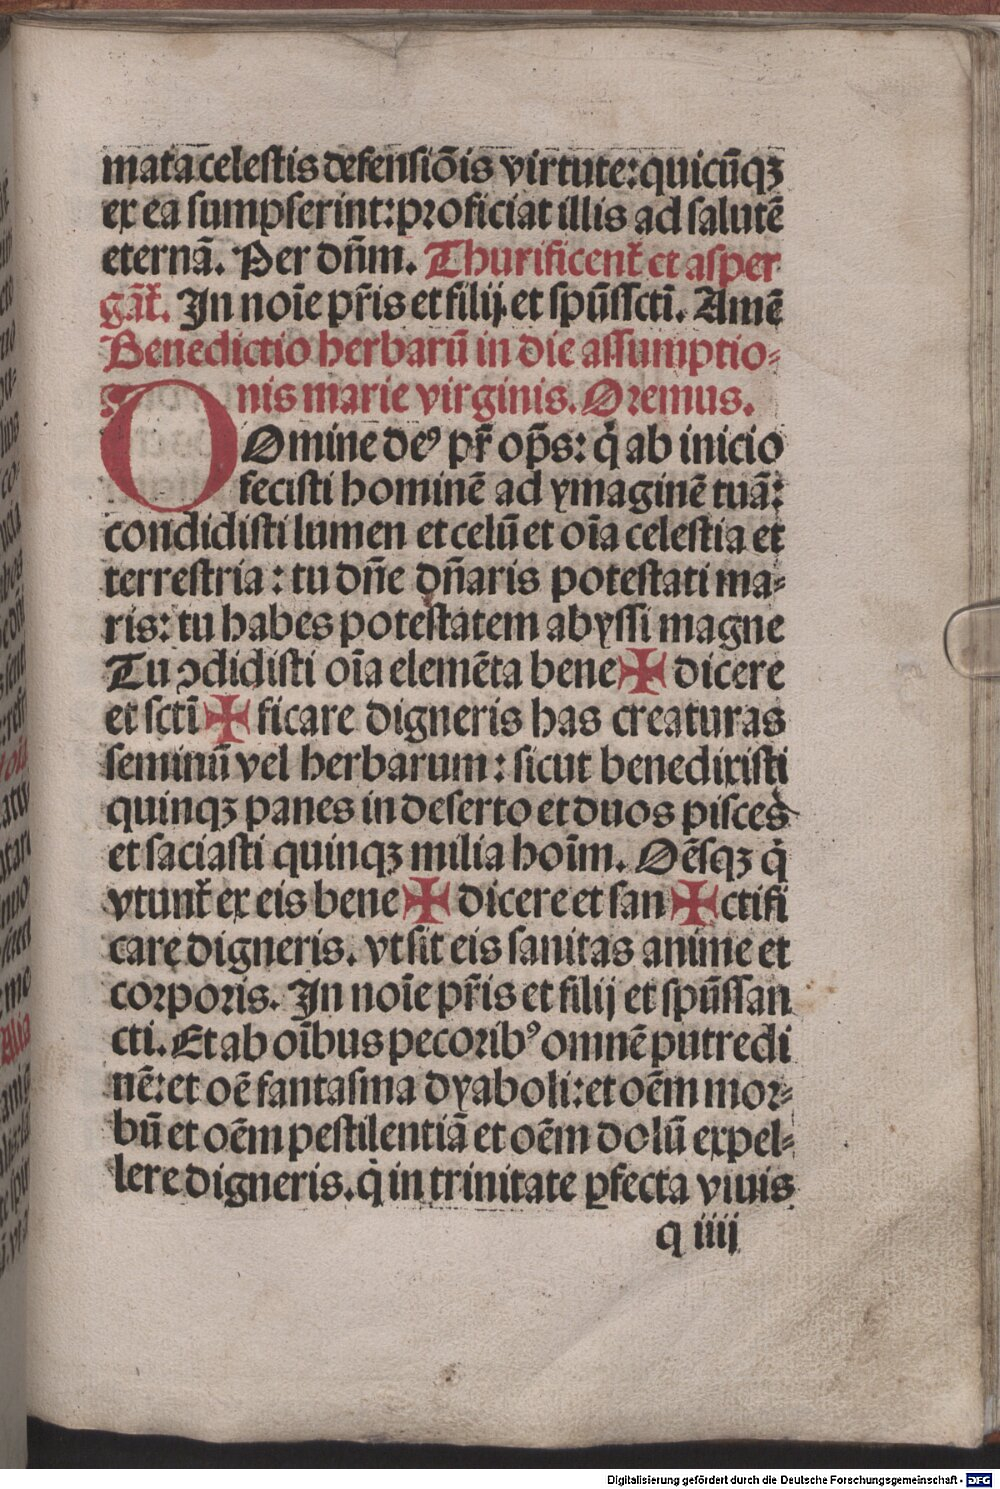 mata celestis defensiōis virtute: quicūqꝫ
ex ea sumpserint: proficiat illis ad salutē
eternā. Per dn̄m. Thurificent᷑ et asper
gāt᷑. In noīe pr̄is et filij et spūssctī. Amē
Benedictio herbarū in die assumptio⸗
nis marie virginis. Oremus.
DOmine deꝰ pr̄ op̄s: q̇ ab inicio
fecisti hominē ad ymaginē tuā:
condidisti lumen et celū et oīa celestia et
terrestria: tu dn̄e dn̄aris potestati ma⸗
ris: tu habes potestatem abyssi magne
Tu ↄdidisti oīa elemēta bene✠dicere
et sctī✠ficare digneris has creaturas
seminū vel herbarum: sicut benedixisti
quinqꝫ panes in deserto et duos pisces
et saciasti quinqꝫ milia hoīm. Oēsqꝫ q̇
vtunt᷑ ex eis bene✠dicere et san✠ctifi
care digneris. vt sit eis sanitas anime et
corporis. In noīe pr̄is et filij et spūssan
cti. Et ab oībus pecoribꝰ omnē putredi
nē: et oē fantasma dyaboli: et oēm mor⸗
bū et oēm pestilentiā et oēm dolū expel⸗
lere digneris. q̇ in trinitate ꝑfecta viuis
q iiij
Digitalisierung gefördert durch die Deutsche Forschungsgemeinschaft - DFG